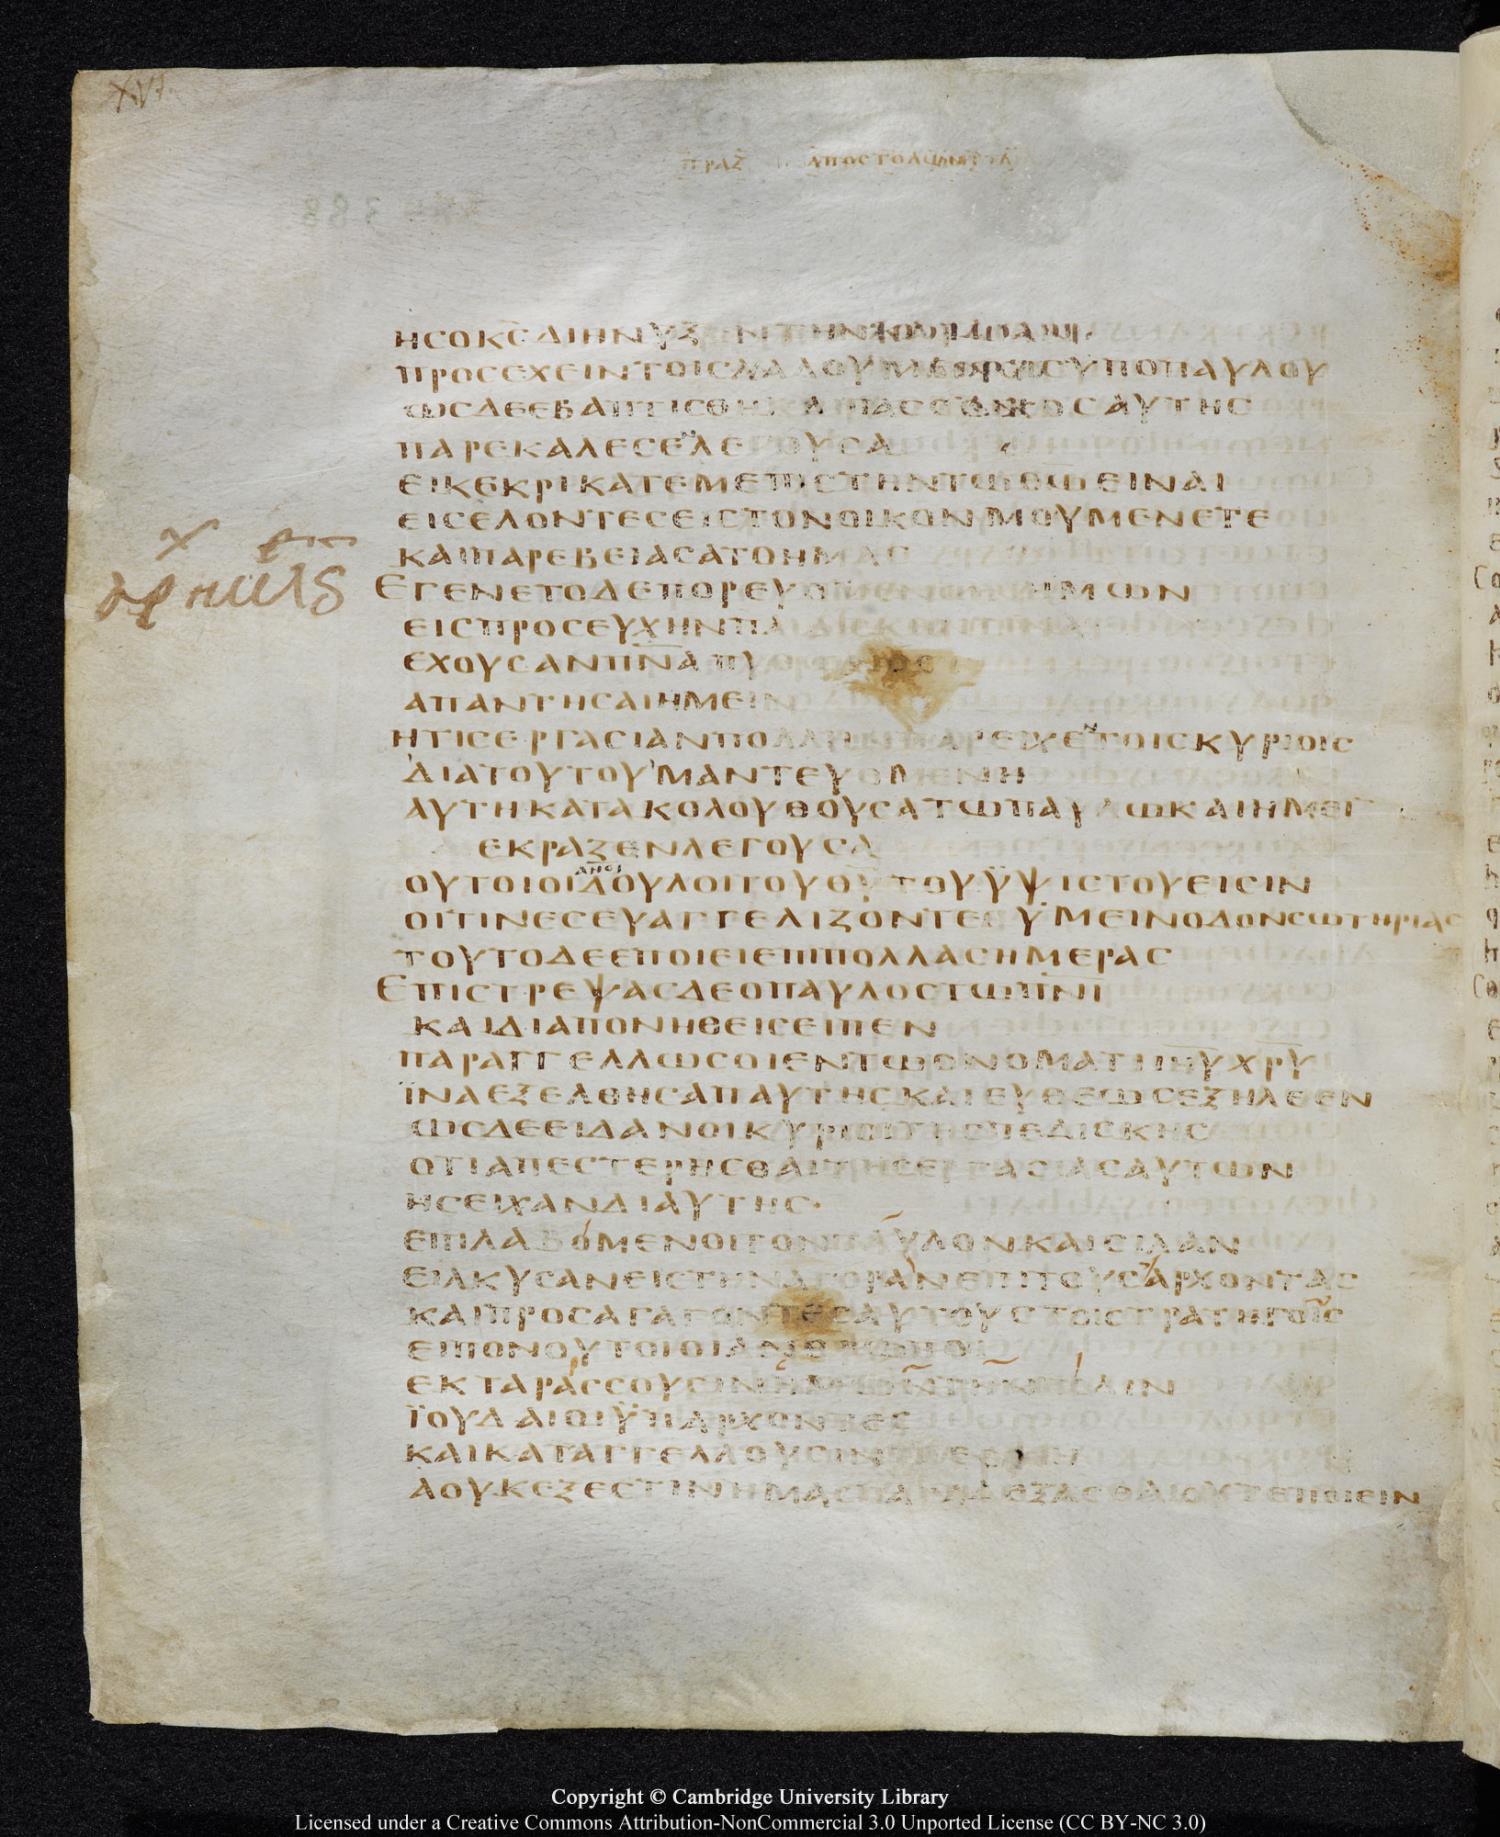 XVI
ΠΡΑΞ ΑΠΟΣΤΟΛΩΝ
ΗCΟΚC̅ΔΙΗΝΥΞΕΝΤΗΝΚΑΡΔΙΑΝ
ΠΡΟCΕΧΕΙΝΤΟΙCΛΑΛΟΥΜΕΝΟΙCΥΠΟΠΑΥΛΟΥ
ΩCΔΕΕΒΑΠΤΙCΘΗΚΑΙΠΑCΟΟΙΚΟCΑΥΤΗC
ΠΑΡΕΚΑΛΕCΕΝΛΕΓΟΥCΑ
ΕΙΚΕΚΡΙΚΑΤΕΜΕΠΙCΤΗΝΤΩΘ̅Ω̅ΕΙΝΑΙ
ΕΙCΕΛΟΝΤΕCΕΙCΤΟΝΟΙΚΟΝΜΟΥΜΕΝΕΤΕ
ΚΑΙΠΑΡΕΒΕΙΑCΑΤΟΗΜΑC
ΕΓΕΝΕΤΟΔΕΠΟΡΕΥΟΜΕΝΩΝΗΜΩΝ
ΕΙCΠΡΟCΕΥΧΗΝΠΑΙΔΙCΚΗΝΤΙΝΑ
ΕΧΟΥCΑΝΠ̅Ν̅Α̅ΠΥΘΩΝΟC
ΑΠΑΝΤΗCΑΙΗΜΕΙΝ
ΗΤΙCΕΡΓΑCΙΑΝΠΟΛΛΗΝΠΑΡΕΙΧΕΝΤΟΙCΚΥΡΙΟΙC
ΔΙΑΤΟΥΤΟΥΜΑΝΤΕΥΟΜΕΝΗ
ΑΥΤΗΚΑΤΑΚΟΛΟΥΘΟΥCΑΤΩΠΑΥΛΩΚΑΙΗΜΕΙΝ
ΕΚΡΑΖΕΝΛΕΓΟΥCΑ
ΑΝΟΙ
ΟΥΤΟΙΟΙΔΟΥΛΟΙΤΟΥΘ̅Υ̅ΤΟΥΫΨΙCΤΟΥΕΙCΙΝ
ΟΙΤΙΝΕCΕΥΑΓΓΕΛΙΖΟΝΤΕΥΜΕΙΝΟΔΟΝCΩΤΗΡΙΑC
ΤΟΥΤΟΔΕΕΠΟΙΕΙΕΠΙΠΟΛΛΑCΗΜΕΡΑC
ΕΠΙCΤΡΕΨΑCΔΕΟΠΑΥΛΟCΤΩΠ̅Ν̅Ι̅
ΚΑΙΔΙΑΠΟΝΗΘΕΙCΕΙΠΕΝ
ΠΑΡΑΓΓΕΛΛΩCΟΙΕΝΤΩΟΝΟΜΑΤΙΙ̅Η̅Υ̅Χ̅Ρ̅Υ̅
ΪΝΑΕΞΕΛΘΗCΑΠΑΥΤΗCΚΑΙΕΥΘΕΩCΕΞΗΛΘΕΝ
ΩCΔΕΕΙΔΑΝΟΙΚΥΡΙΟΙΤΗCΠΕΔΙCΚΗC
ΟΤΙΑΠΕCΤΕΡΗCΘΑΙΤΗCΕΡΓΑCΙΑCΑΥΤΩΝ
ΗCΕΙΧΑΝΔΙΑΥΤΗC·
ΕΠΙΛΑΒΟΜΕΝΟΙΤΟΝΠΑΥΛΟΝΚΑΙCΙΛΑΝ
ΕΙΛΚΥCΑΝΕΙCΤΗΝΑΓΟΡΑΝΕΠΙΤΟΥCΑΡΧΟΝΤΑC
ΚΑΙΠΡΟCΑΓΑΓΟΝΤΕCΑΥΤΟΥCΤΟΙCΤΡΑΤΗΓΟΙC
ΕΙΠΟΝΟΥΤΟΙΟΙΑΝΘΡΩΠΟΙ
ΕΚΤΑΡΑCCΟΥCΙΝΗΜΩΝΤΗΝΠΟΛΙΝ
ΪΟΥΔΑΙΟΙΫΠΑΡΧΟΝΤΕC
ΚΑΙΚΑΤΑΓΓΕΛΛΟΥCΙΝ
ΑΟΥΚΕΞΕCΤΙΝΗΜΑCΠΑΡΑΔΕΞΑCΘΑΙΟΥΤΕΠΟΙΕΙΝ
Copyright © Cambridge University Library
Licensed under a Creative Commons Attribution-NonCommercial 3.0 Unported License (CC BY-NC 3.0)